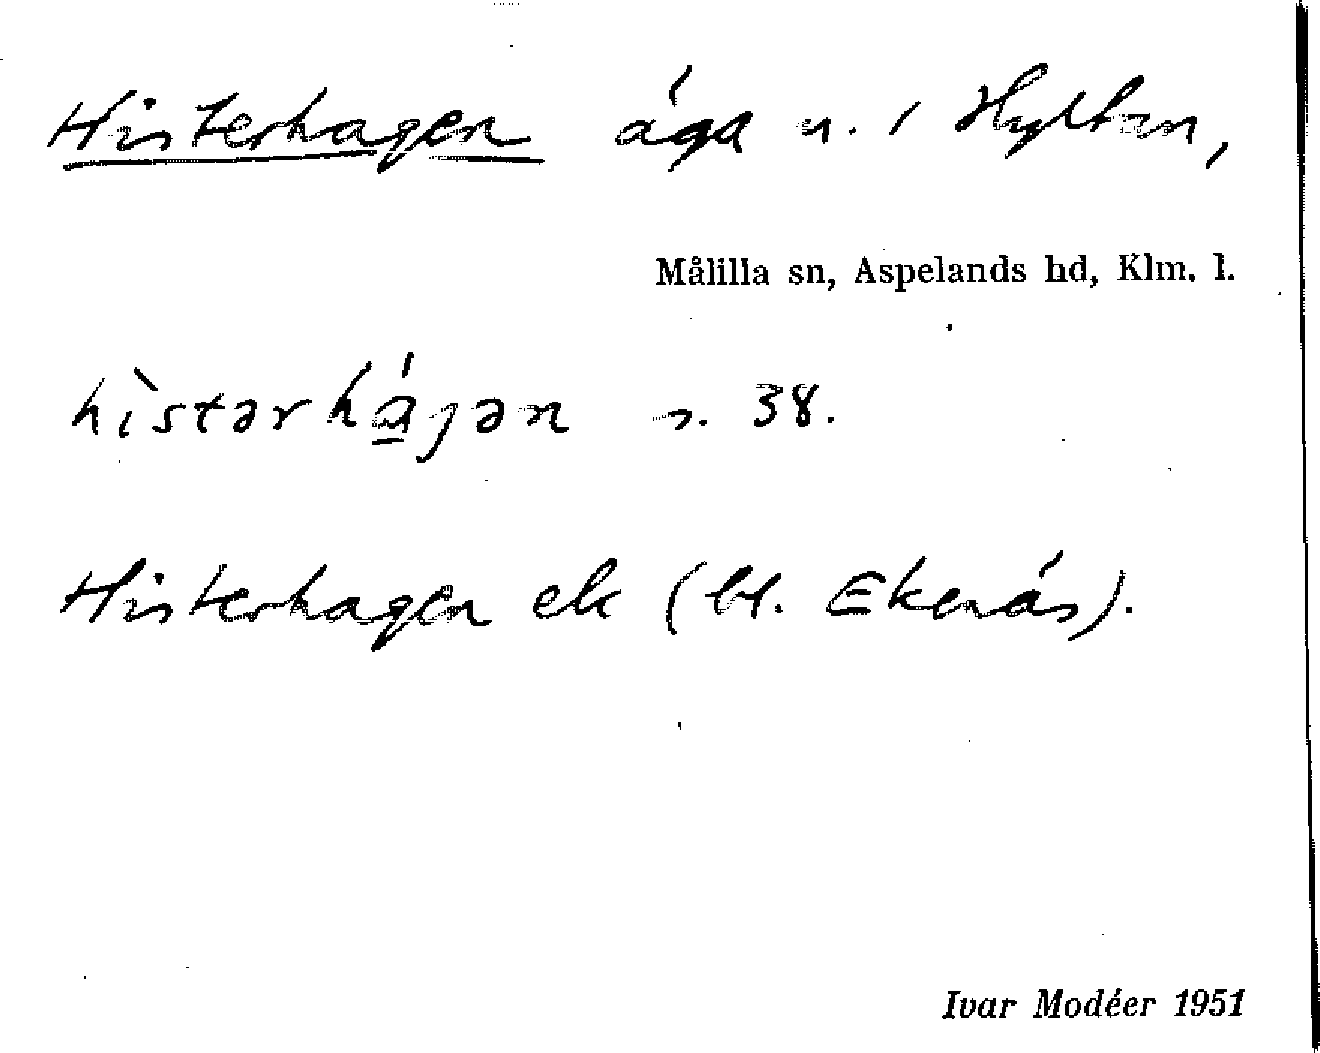 Histerhagen äga n. i Hyltan,
Målilla sn, Aspelands hd, Klm. l.
hìstərhájən s. 38.
Histerhagen ek (bl. Ekenäs).
Ivar Modéer 1951